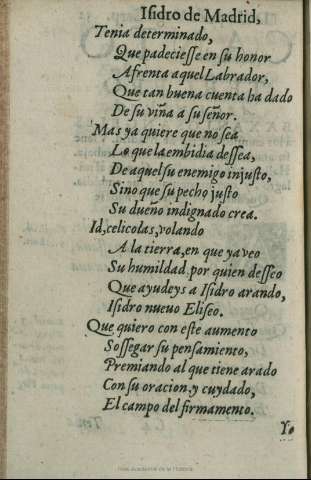 Isidro de Madrid,
Tenia determinado,
Que padeciesse en su honor
Afrenta aquel Labrador,
Que tan buena cuenta ha dado
De su viña a su señor.
Mas ya quiere que no sea
Lo que la embidia dessea,
De aquel su enemigo injusto,
Sino que su pecho justo
Su dueño indignado crea.
Id, celicolas, volando
A la tierra, en que ya veo
Su humildad por quien desseo
Que ayudeys a Isidro arando,
Isidro nueuo Eliseo.
Que quiero con este aumento
Sossegar su pensamiento,
Premiando al que tiene arado
Con su oracion, y cuydado,
El campo del firmamento.
Yo